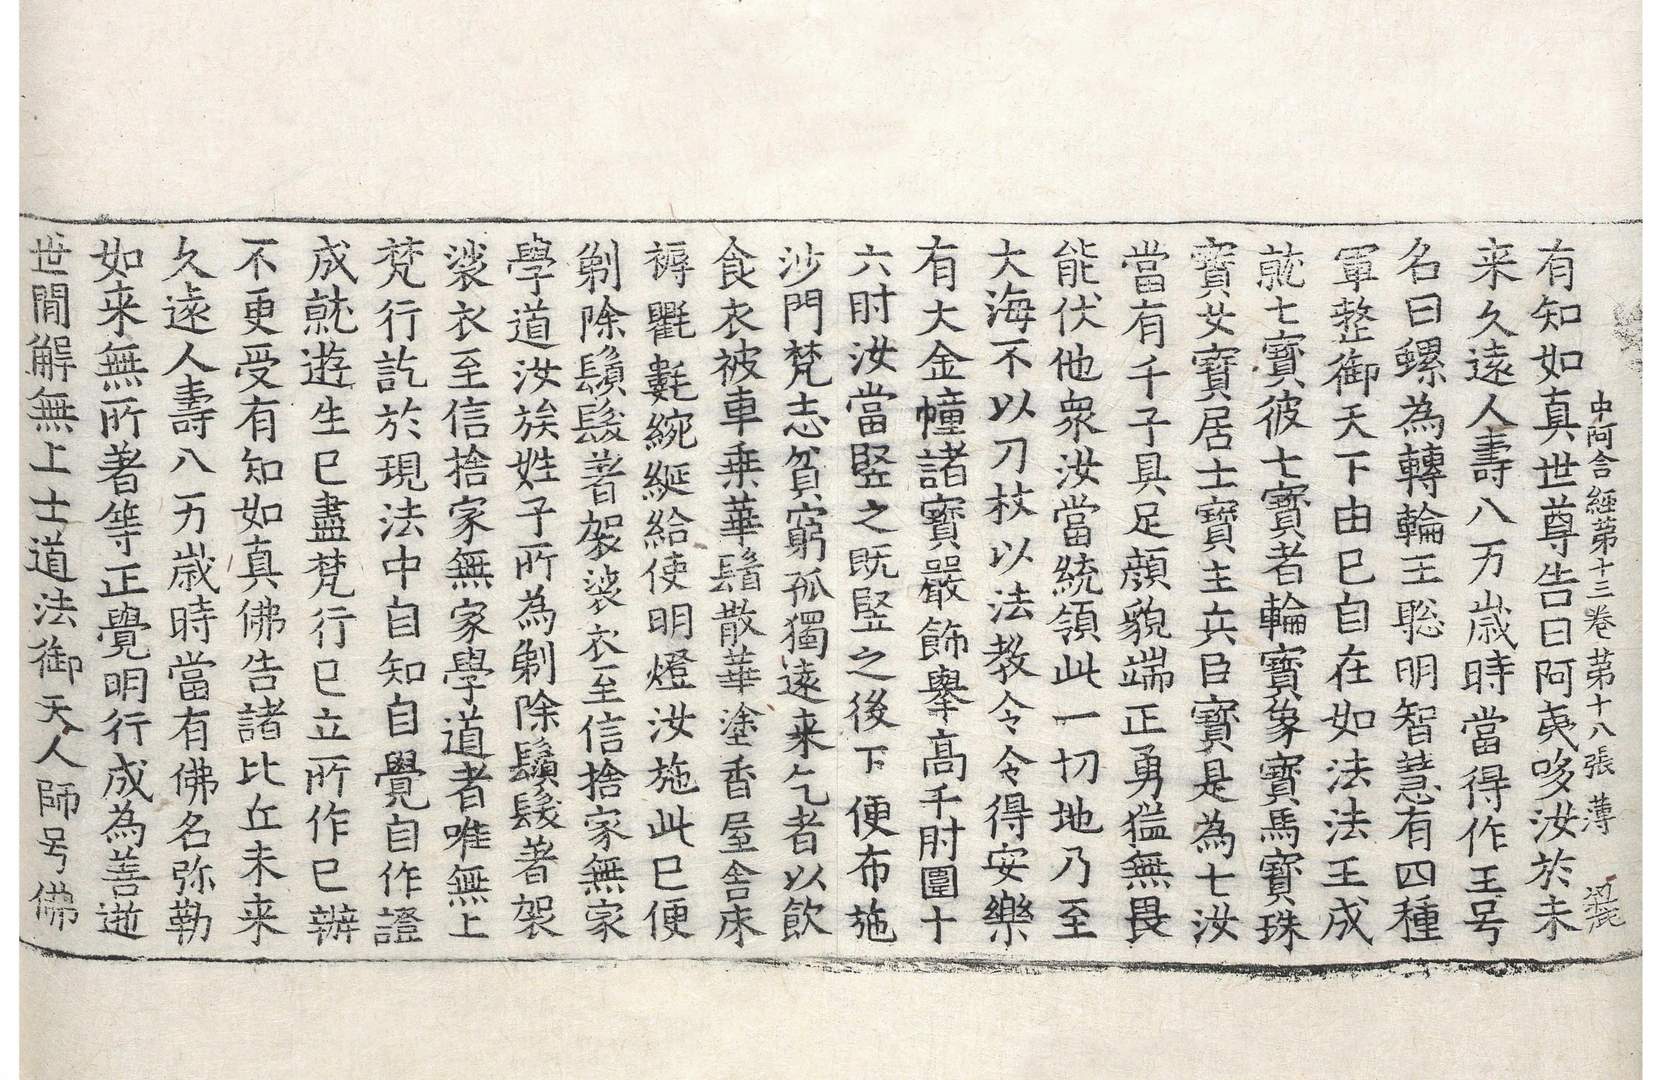 中阿含經第十三卷 第十八張 薄
有知如真世尊告曰阿夷哆汝於未
来久遠人壽八万歲時當得作王号
名曰螺為轉輪王聡明智慧有四種
軍整御天下由已自在如法法王成
就七寶彼七寶者輪寶象寶馬寶珠
寶女寶居士寶主兵臣寶是為七汝
當有千子具足顔貌端正勇猛無畏
能伏他衆汝當統領此一切地乃至
大海不以刀杖以法教令令得安樂
有大金幢諸寶嚴飾舉高千肘圍十
六肘汝當竪之既竪之後下便布施
沙門梵志貧窮孤獨遠来乞者以飲
食衣被車乗華鬘散華塗香屋舎床
褥氍氀綩綖給使明燈汝施此已便
剃除鬚髮著袈裟衣至信捨家無家
學道汝族姓子所為剃除鬚髮著袈
裟衣至信捨家無家學道者唯無上
梵行訖於現法中自知自覺自作證
成就遊生已盡梵行已立所作已辦
不更受有知如真佛告諸比丘未来
久遠人壽八万歲時當有佛名弥勒
如来無所著等正覺明行成為善逝
世間解無上士道法御天人師号佛